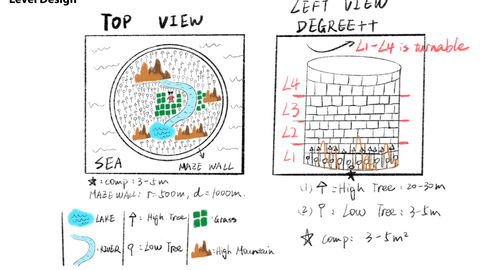 Level Design
TOP VIEW
SEA
MAZE WALL
★ comp: 3-5m
MAZE WALL: r=500m, d=1000m.
LAKE
: High Tree
: Grass
RIVER
: Low Tree
: High Mountain
LEFT VIEW
DEGREE++
L1-L4 is turnable
L4
L3
L2
L1
(1) ↑ = High Tree: 20-30m
(2) = Low Tree: 3-5m
★ comp: 3-5m²